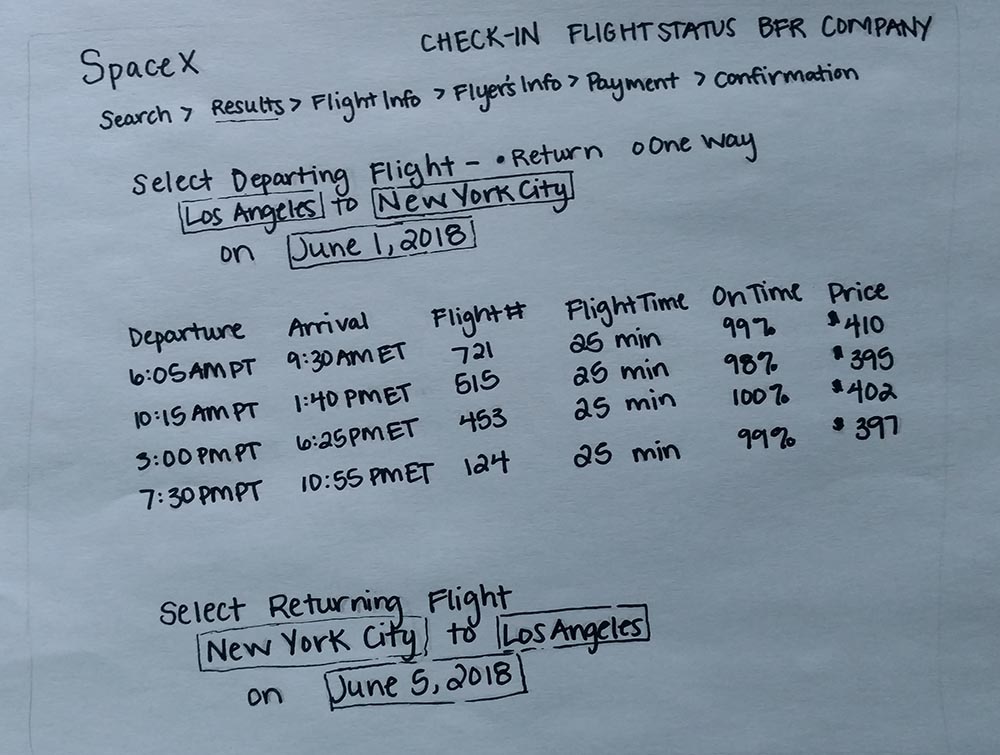 SpaceX
CHECK-IN FLIGHT STATUS BFR COMPANY
Search > Results > Flight Info > Flyer's Info > Payment > Confirmation
Select Departing Flight - • Return o One Way
Los Angeles to New York City
on June 1, 2018
Departure Arrival Flight# Flight Time On Time Price
6:05 AM PT 9:30 AM ET 721 25 min 99% $410
10:15 AM PT 1:40 PM ET 515 25 min 98% $395
3:00 PM PT 6:25 PM ET 453 25 min 100% $402
7:30 PM PT 10:55 PM ET 124 25 min 99% $397
Select Returning Flight
New York City to Los Angeles
on June 5, 2018